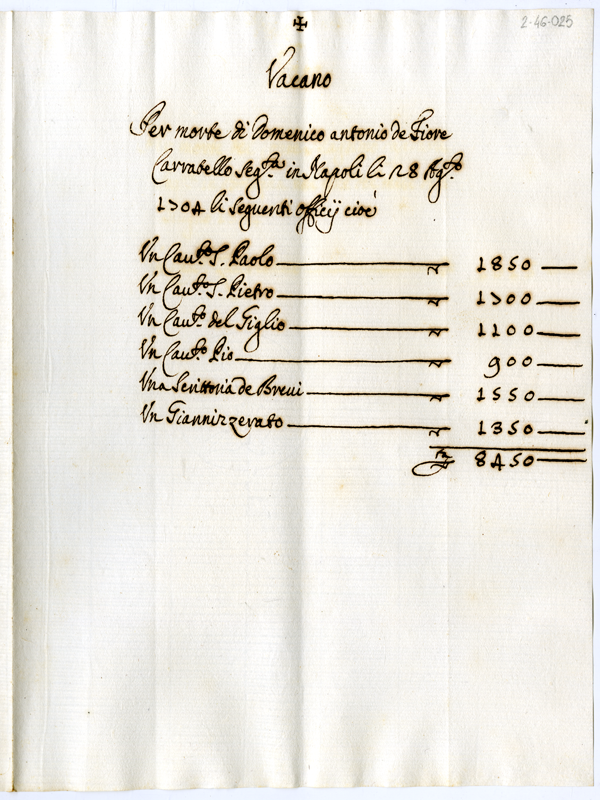 ✠
2-46-025
Vacano
Per morte di Domenico antonio de Fiore
Carrabello seg.ta in Napoli li 28 Ag.to
1704 li seguenti officij cioè
Un Cau.to S. Paolo 1850
Un Cau.to S. Pietro 1700
Un Cau.to del Giglio 1100
Un Cau.to Pio 900
Una Scrittoria de Breui 1550
Un Giannizzerato 1350
8450